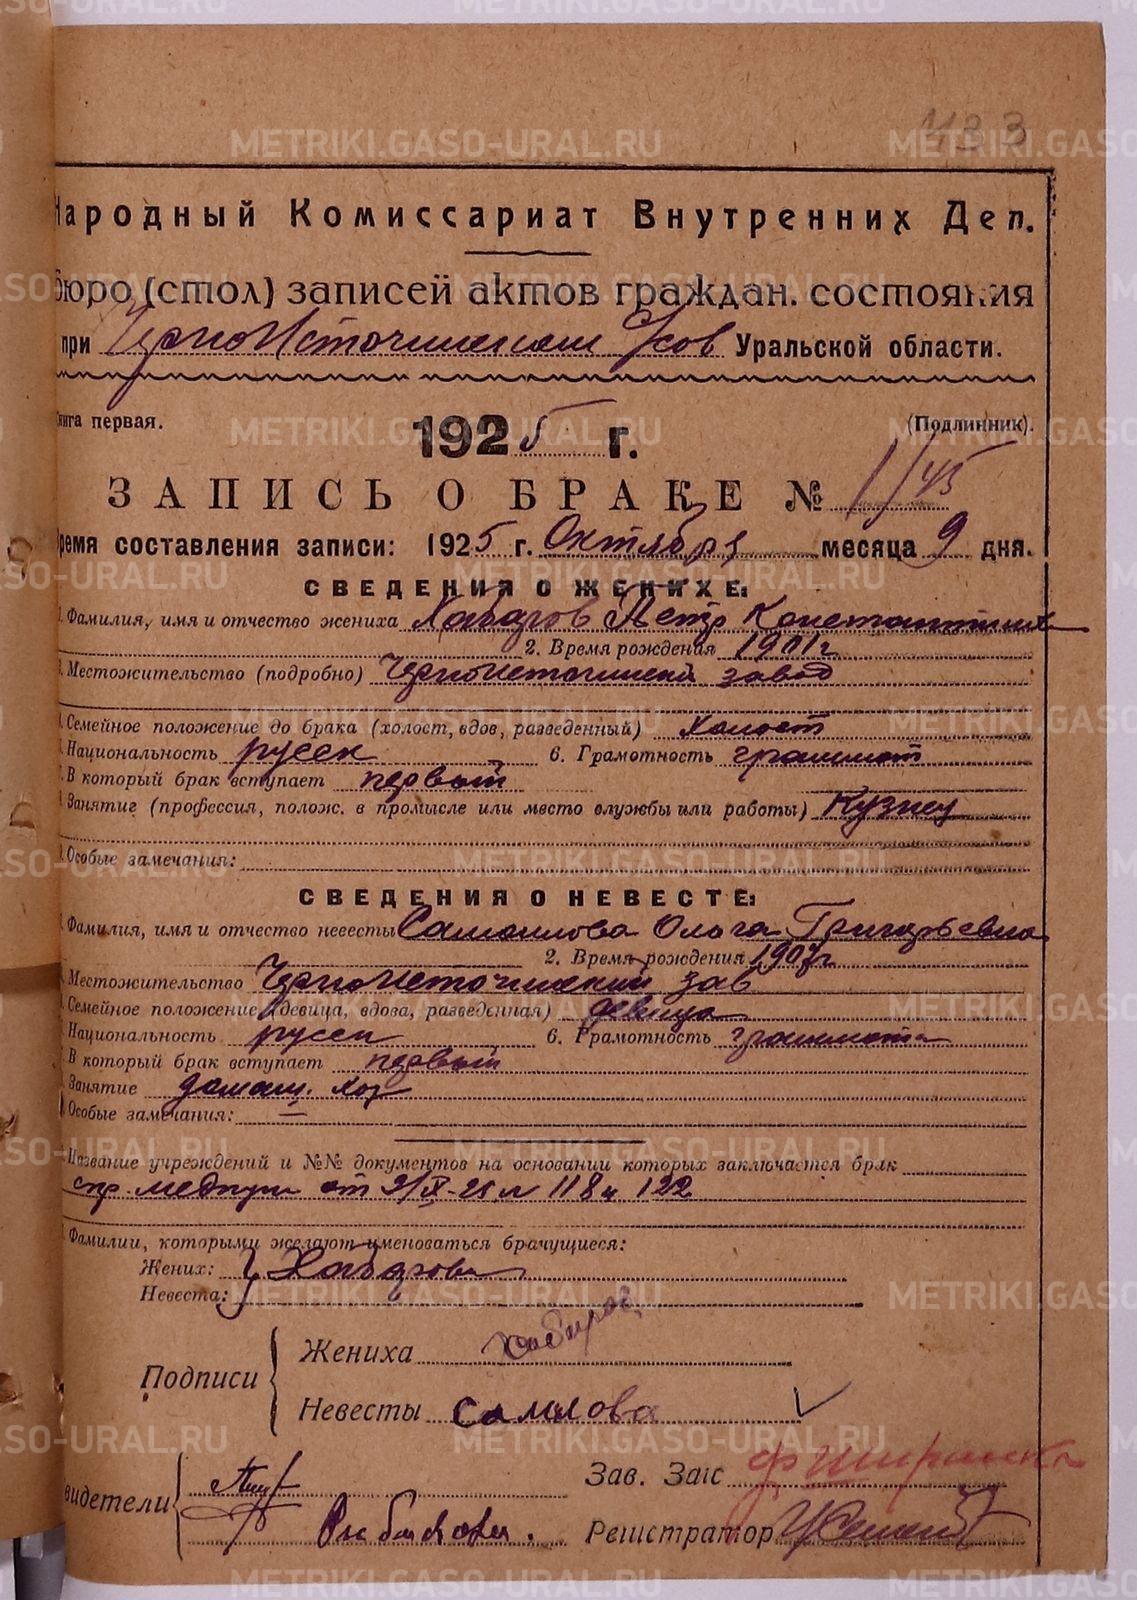 433
Народный Комиссариат Внутренних Дел.
Бюро (стол) записей актов граждан. состояния
при ЧерноИсточинском Уральской области.
Книга первая.
(Подлинник).
1925 г.
ЗАПИСЬ О БРАКЕ № 1/45
Время составления записи: 1925 г. Октября месяца 9 дня.
СВЕДЕНИЯ О ЖЕНИХЕ:
1. Фамилия, имя и отчество жениха Хабаров Петр Константинов
2. Время рождения 1901 г
3. Местожительство (подробно) Черноисточинский завод
4. Семейное положение до брака (холост, вдов, разведенный) Холост
5. Национальность русск 6. Грамотность грамот
7. В который брак вступает первый
8. Занятие (профессия, полож. в промысле или место службы или работы) Кузнец
9. Особые замечания:
СВЕДЕНИЯ О НЕВЕСТЕ:
1. Фамилия, имя и отчество невесты Самойлова Ольга Григорьевна
2. Время рождения 1907 г
3. Местожительство Черноисточинский зав
4. Семейное положение (девица, вдова, разведенная) девица
5. Национальность русск 6. Грамотность грамотна
7. В который брак вступает первый
8. Занятие домаш. хоз
9. Особые замечания: —
Название учреждений и №№ документов на основании которых заключается брак
спр. медпун от 9/X-25 № 118 и 122
Фамилии, которыми желают именоваться брачущиеся:
Жених: Хабаровы
Невеста:
Подписи
Жениха Хабаров
Невесты Самлова
Свидетели
Зав. Загс
Регистратор
METRIKI.GASO-URAL.RU